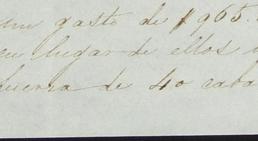 un gasto de $ 965.
en lugar de ellos
guerra de 40 caba